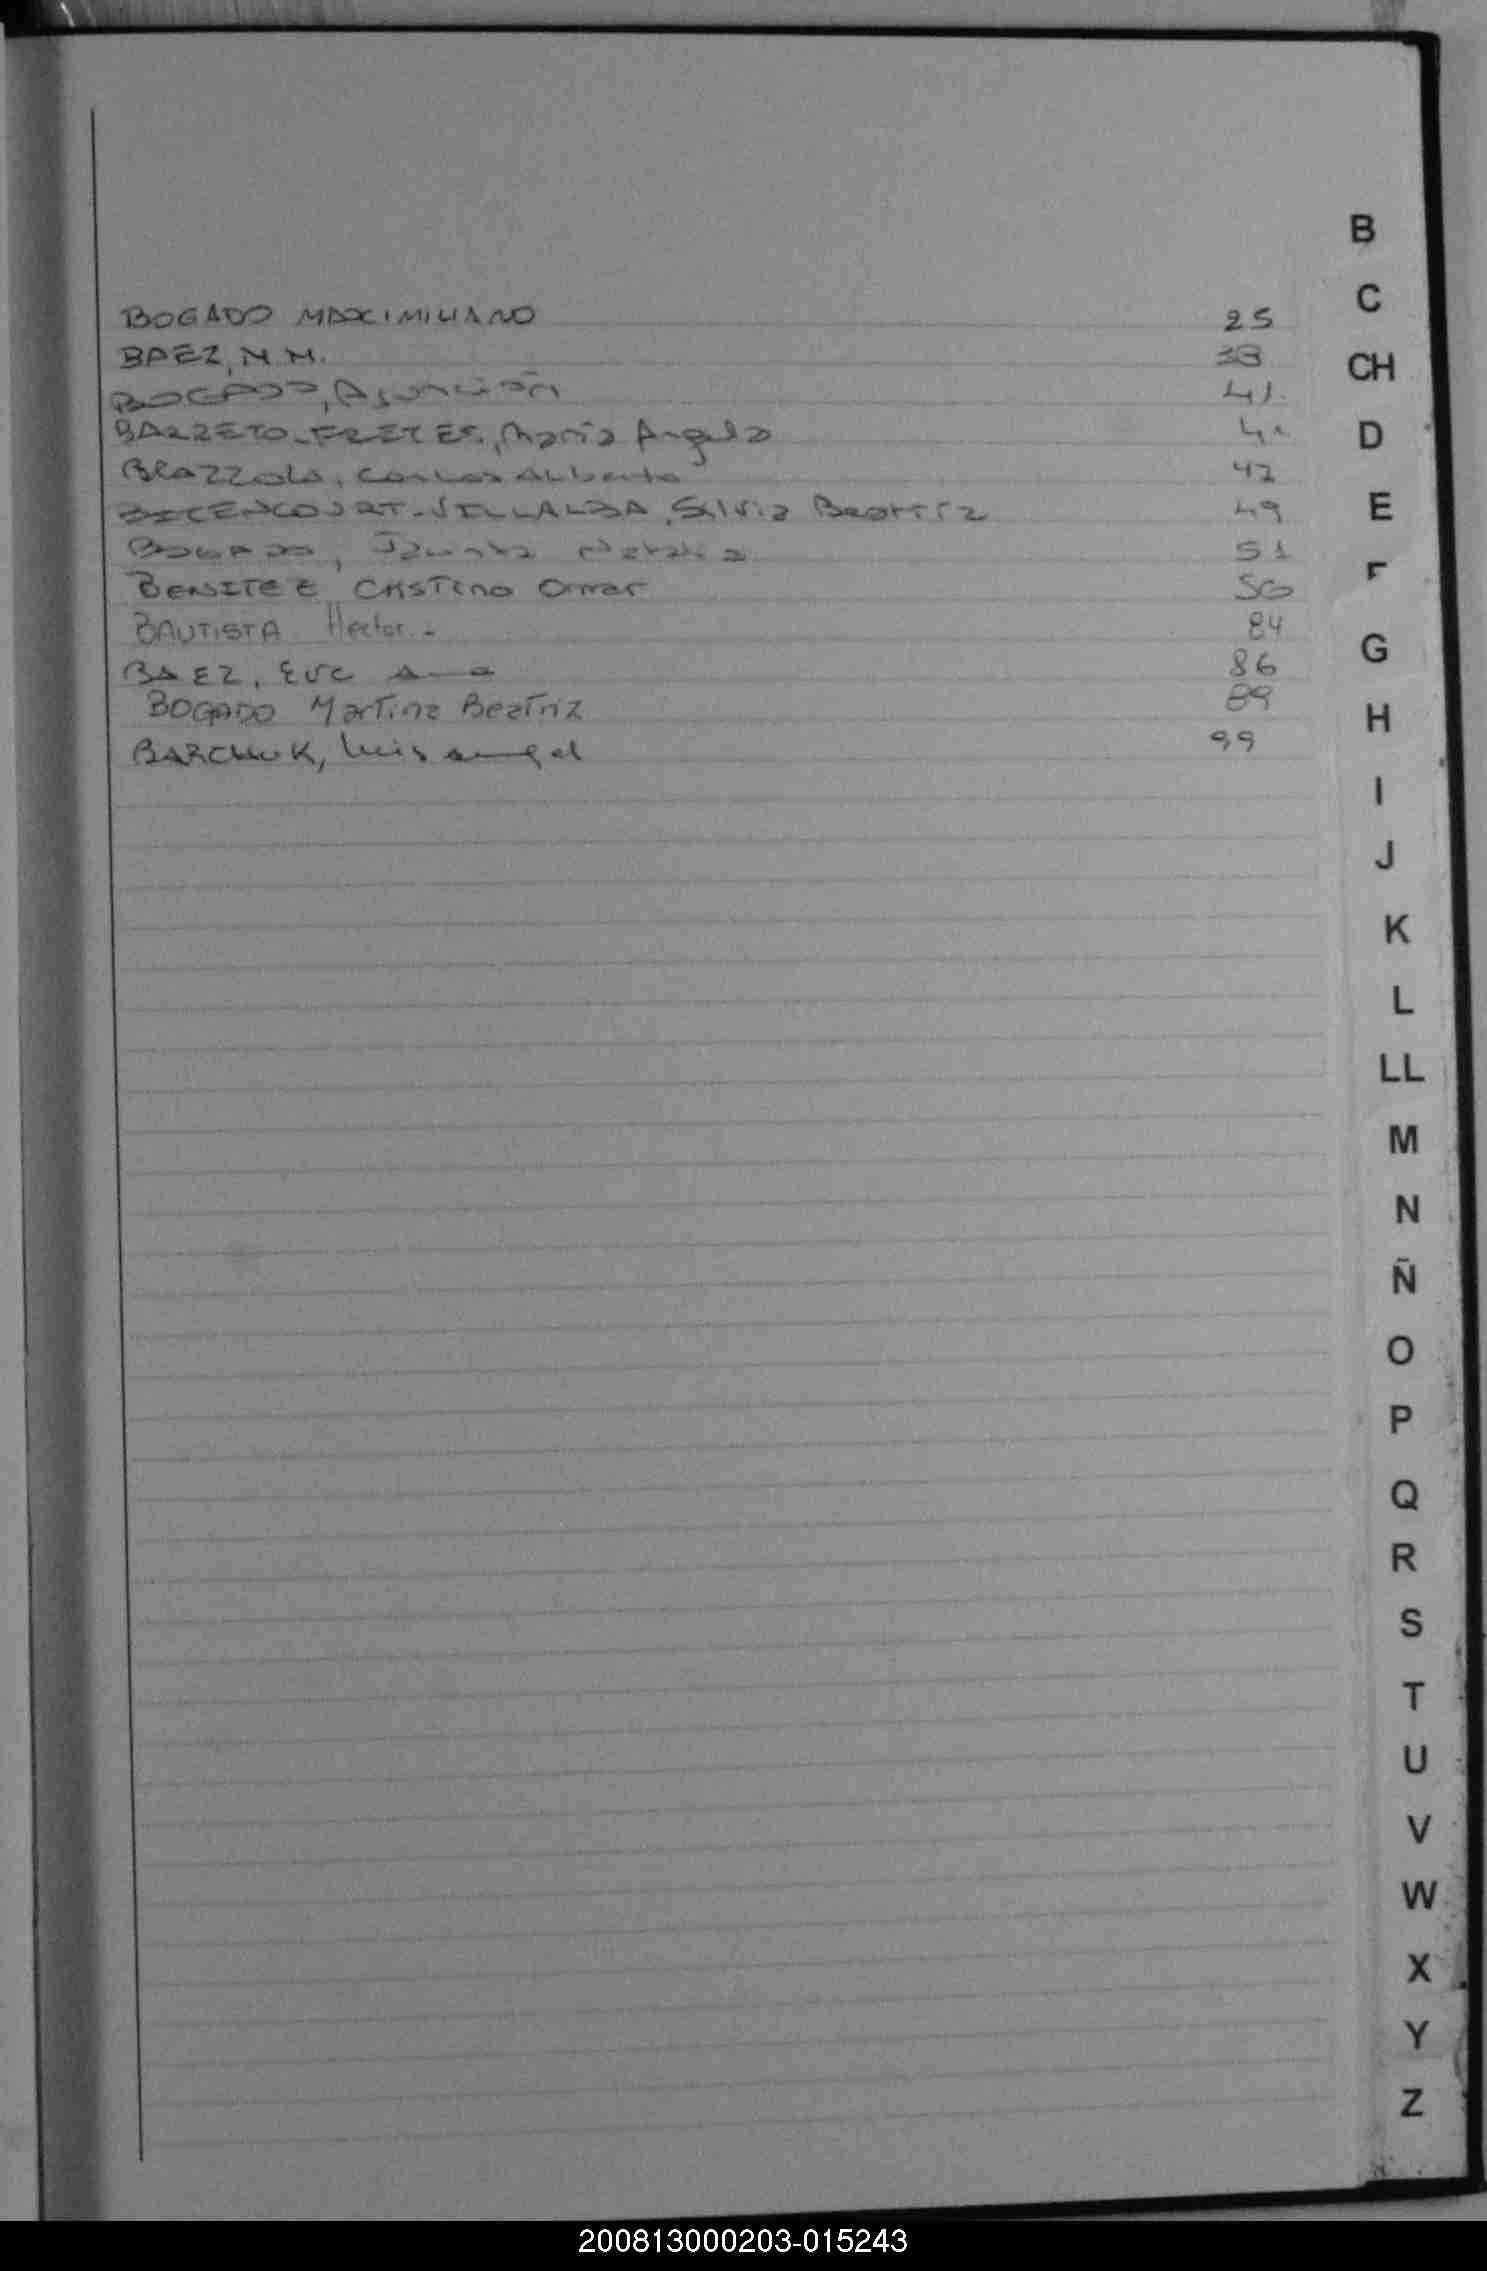 BOGADO MAXIMILIANO 25
BAEZ, N.N. 38
BOGADO, Asunción 41
BARRETO-FRETES, María Angela
BRAZZOLA, Carlos Alberto 42
BICENCOURT-VILLALBA, Silvia Beatriz 49
BOGADO, Natalia 51
BENITEZ Cristino Omar 56
BAUTISTA Hector.- 84
BAEZ, Eva Ana 86
BOGADO Martina Beatriz 89
BARCHUK, Luis angel 99
B
C
CH
D
E
F
G
H
I
J
K
L
LL
M
N
Ñ
O
P
Q
R
S
T
U
V
W
X
Y
Z
200813000203-015243